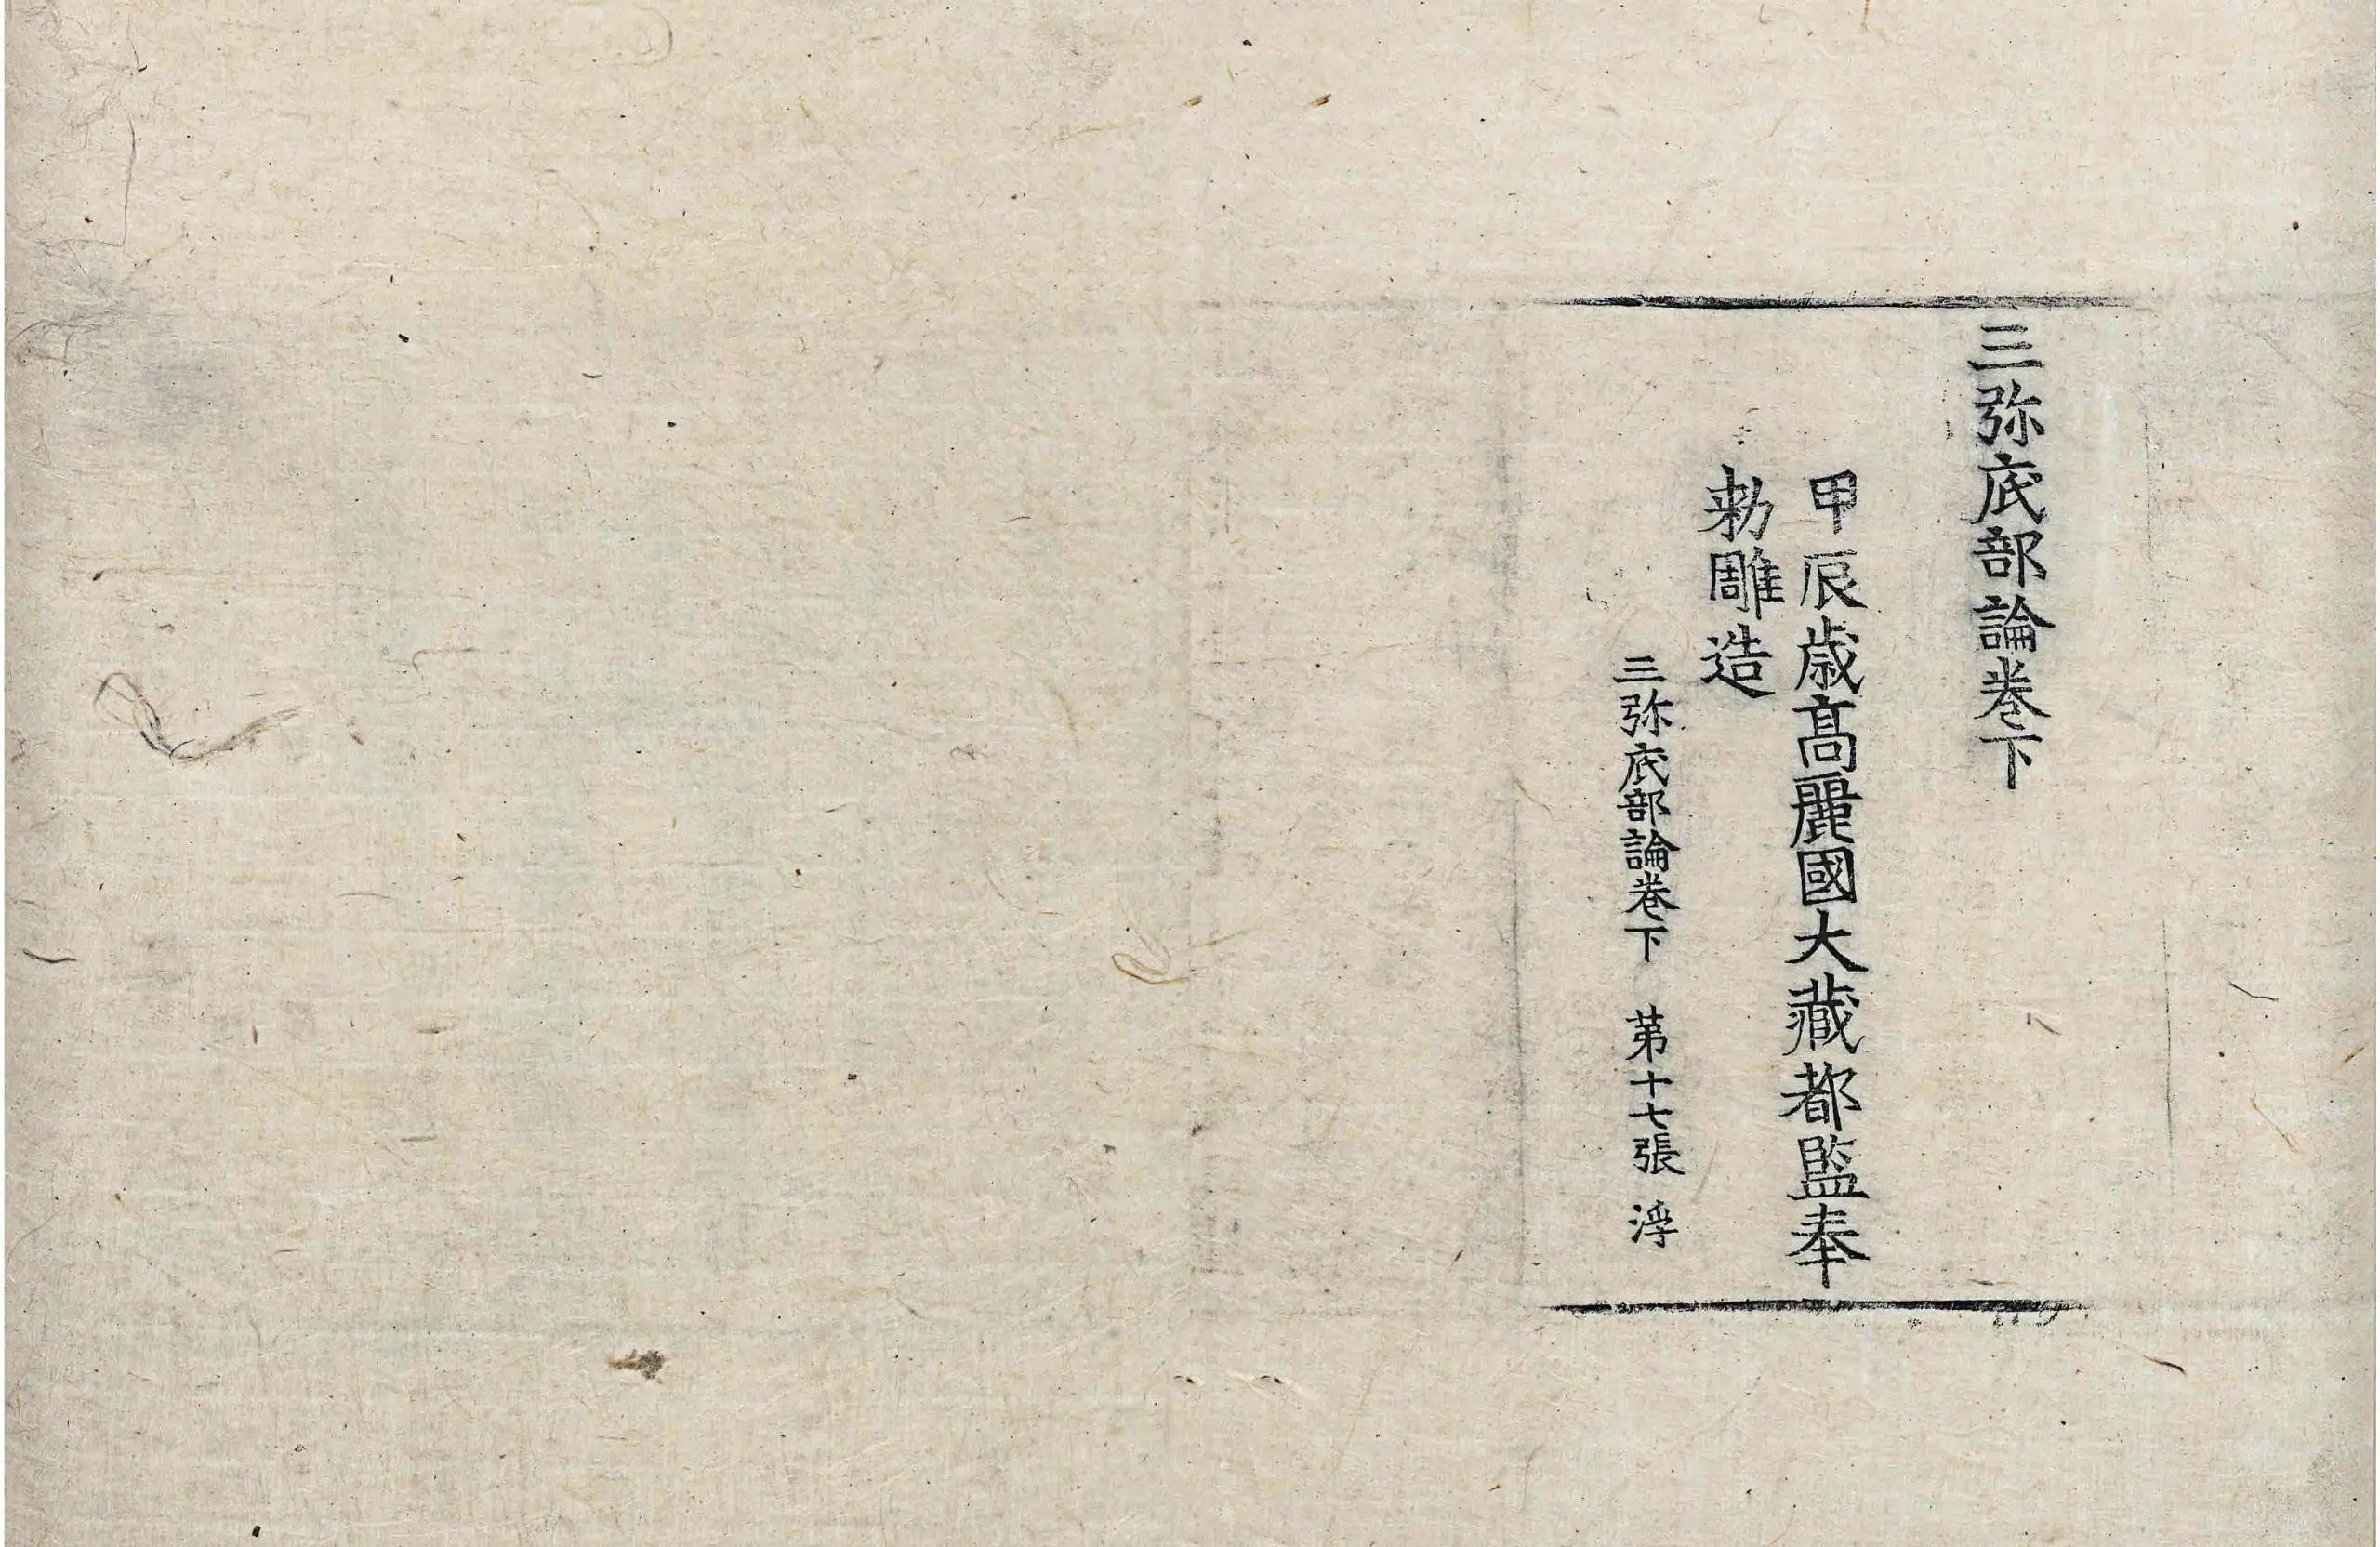 三弥底部論卷下
甲辰歳高麗國大藏都監奉
勅雕造
三弥底部論卷下 第十七張 浮